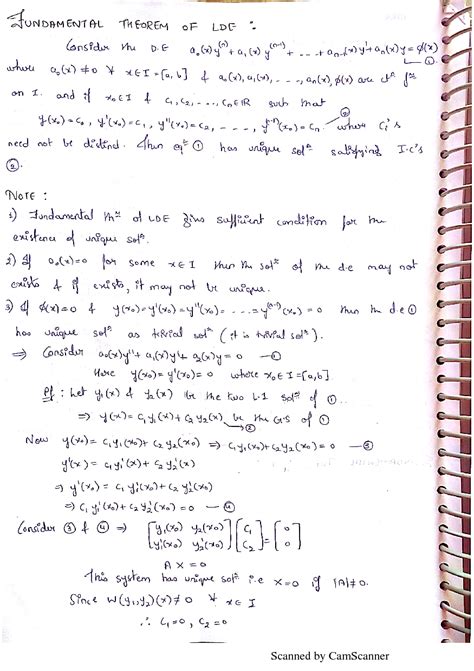 FUNDAMENTAL THEOREM OF LDE :
Consider the D.E a₀(x)y⁽ⁿ⁾+a₁(x)y⁽ⁿ⁻¹⁾+ ... +aₙ₋₁(x)y'+aₙ(x)y=φ(x) ①
where a₀(x)≠0 ∀ x∈I=[a,b] & a₀(x),a₁(x),...,aₙ(x),φ(x) are ctˢ fⁿˢ
on I. and if x₀∈I & c₁,c₂,...,cₙ∈ℝ such that
y(x₀)=c₀, y'(x₀)=c₁, y''(x₀)=c₂, ..., y⁽ⁿ⁻¹⁾(x₀)=cₙ. ② where cᵢ's
need not be distinct. Then eqⁿ ① has unique solⁿ satisfying I.C's
②.
NOTE :
1) Fundamental thᵐ of LDE gives sufficient condition for the
existence of unique solⁿ.
2) If a₀(x)=0 for some x∈I then the solⁿ of the d.e may not
exists & if exists, it may not be unique.
3) If φ(x)=0 & y(x₀)=y'(x₀)=y''(x₀)=...=y⁽ⁿ⁻¹⁾(x₀)=0 then the d.e ①
has unique solⁿ as trivial solⁿ (it is trivial solⁿ).
⇒ Consider a₀(x)y''+a₁(x)y'+a₂(x)y=0 —①
Here y(x₀)=y'(x₀)=0 where x₀∈I=[a,b]
Pf : Let y₁(x) & y₂(x) be the two L.I solⁿ of ①
⇒ y(x)=c₁y₁(x)+c₂y₂(x) be the G.S of ①
②
Now y(x₀)=c₁y₁(x₀)+c₂y₂(x₀) ⇒ c₁y₁(x₀)+c₂y₂(x₀)=0 —③
y'(x)=c₁y₁'(x)+c₂y₂'(x)
⇒ y'(x₀)=c₁y₁'(x₀)+c₂y₂'(x₀)
⇒ c₁y₁'(x₀)+c₂y₂'(x₀)=0 —④
Consider ③ & ④ ⇒ [y₁(x₀) y₂(x₀)] [c₁] = [0]
[y₁'(x₀) y₂'(x₀)] [c₂] [0]
A X = 0
This system has unique solⁿ i.e X=0 if |A|≠0.
Since W(y₁,y₂)(x)≠0 ∀ x∈I
∴ c₁=0, c₂=0
Scanned by CamScanner